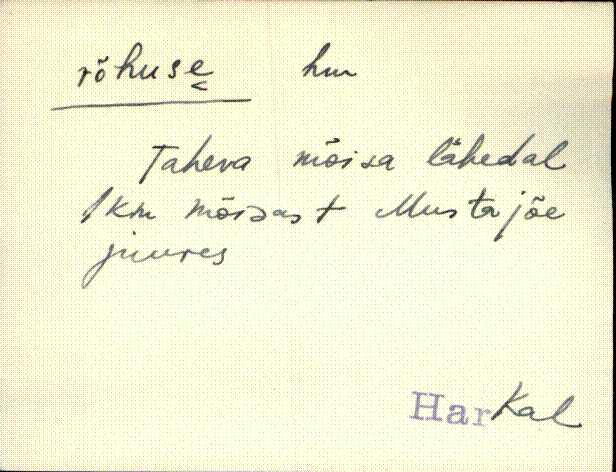 rõhuse̬ hm
Taheva mõisa lähedal
1 km mõisast Mustajõe
juures
Har Kal